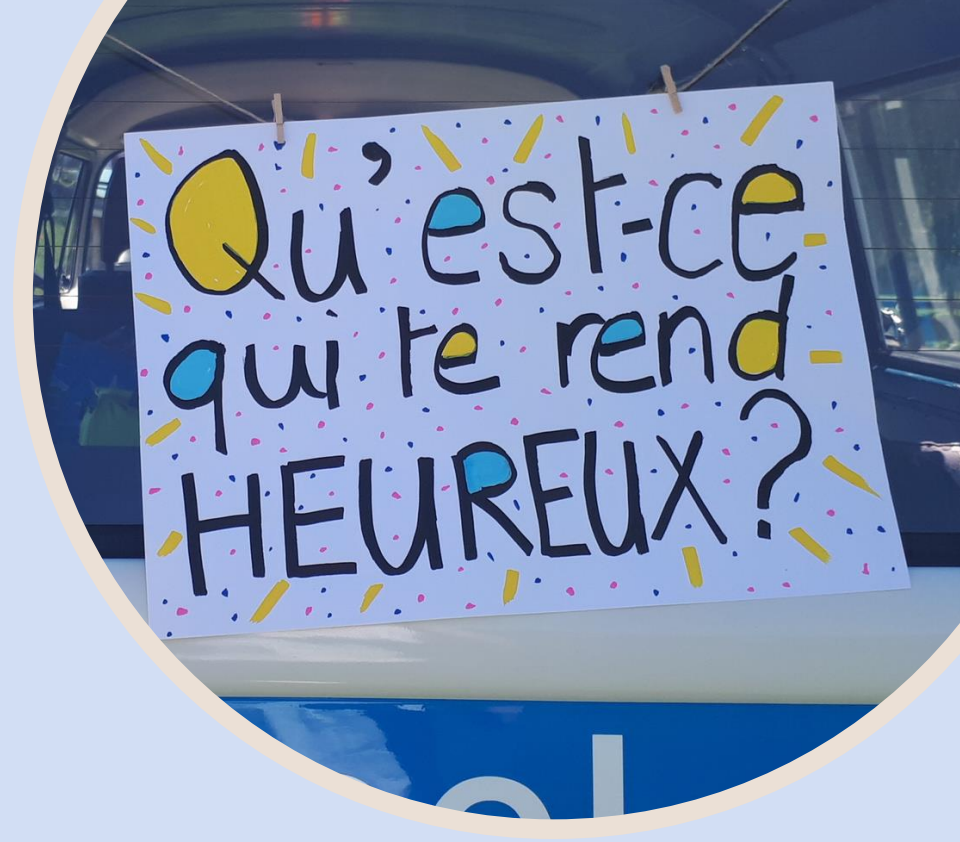 Qu'est-ce
qui te rend
HEUREUX ?